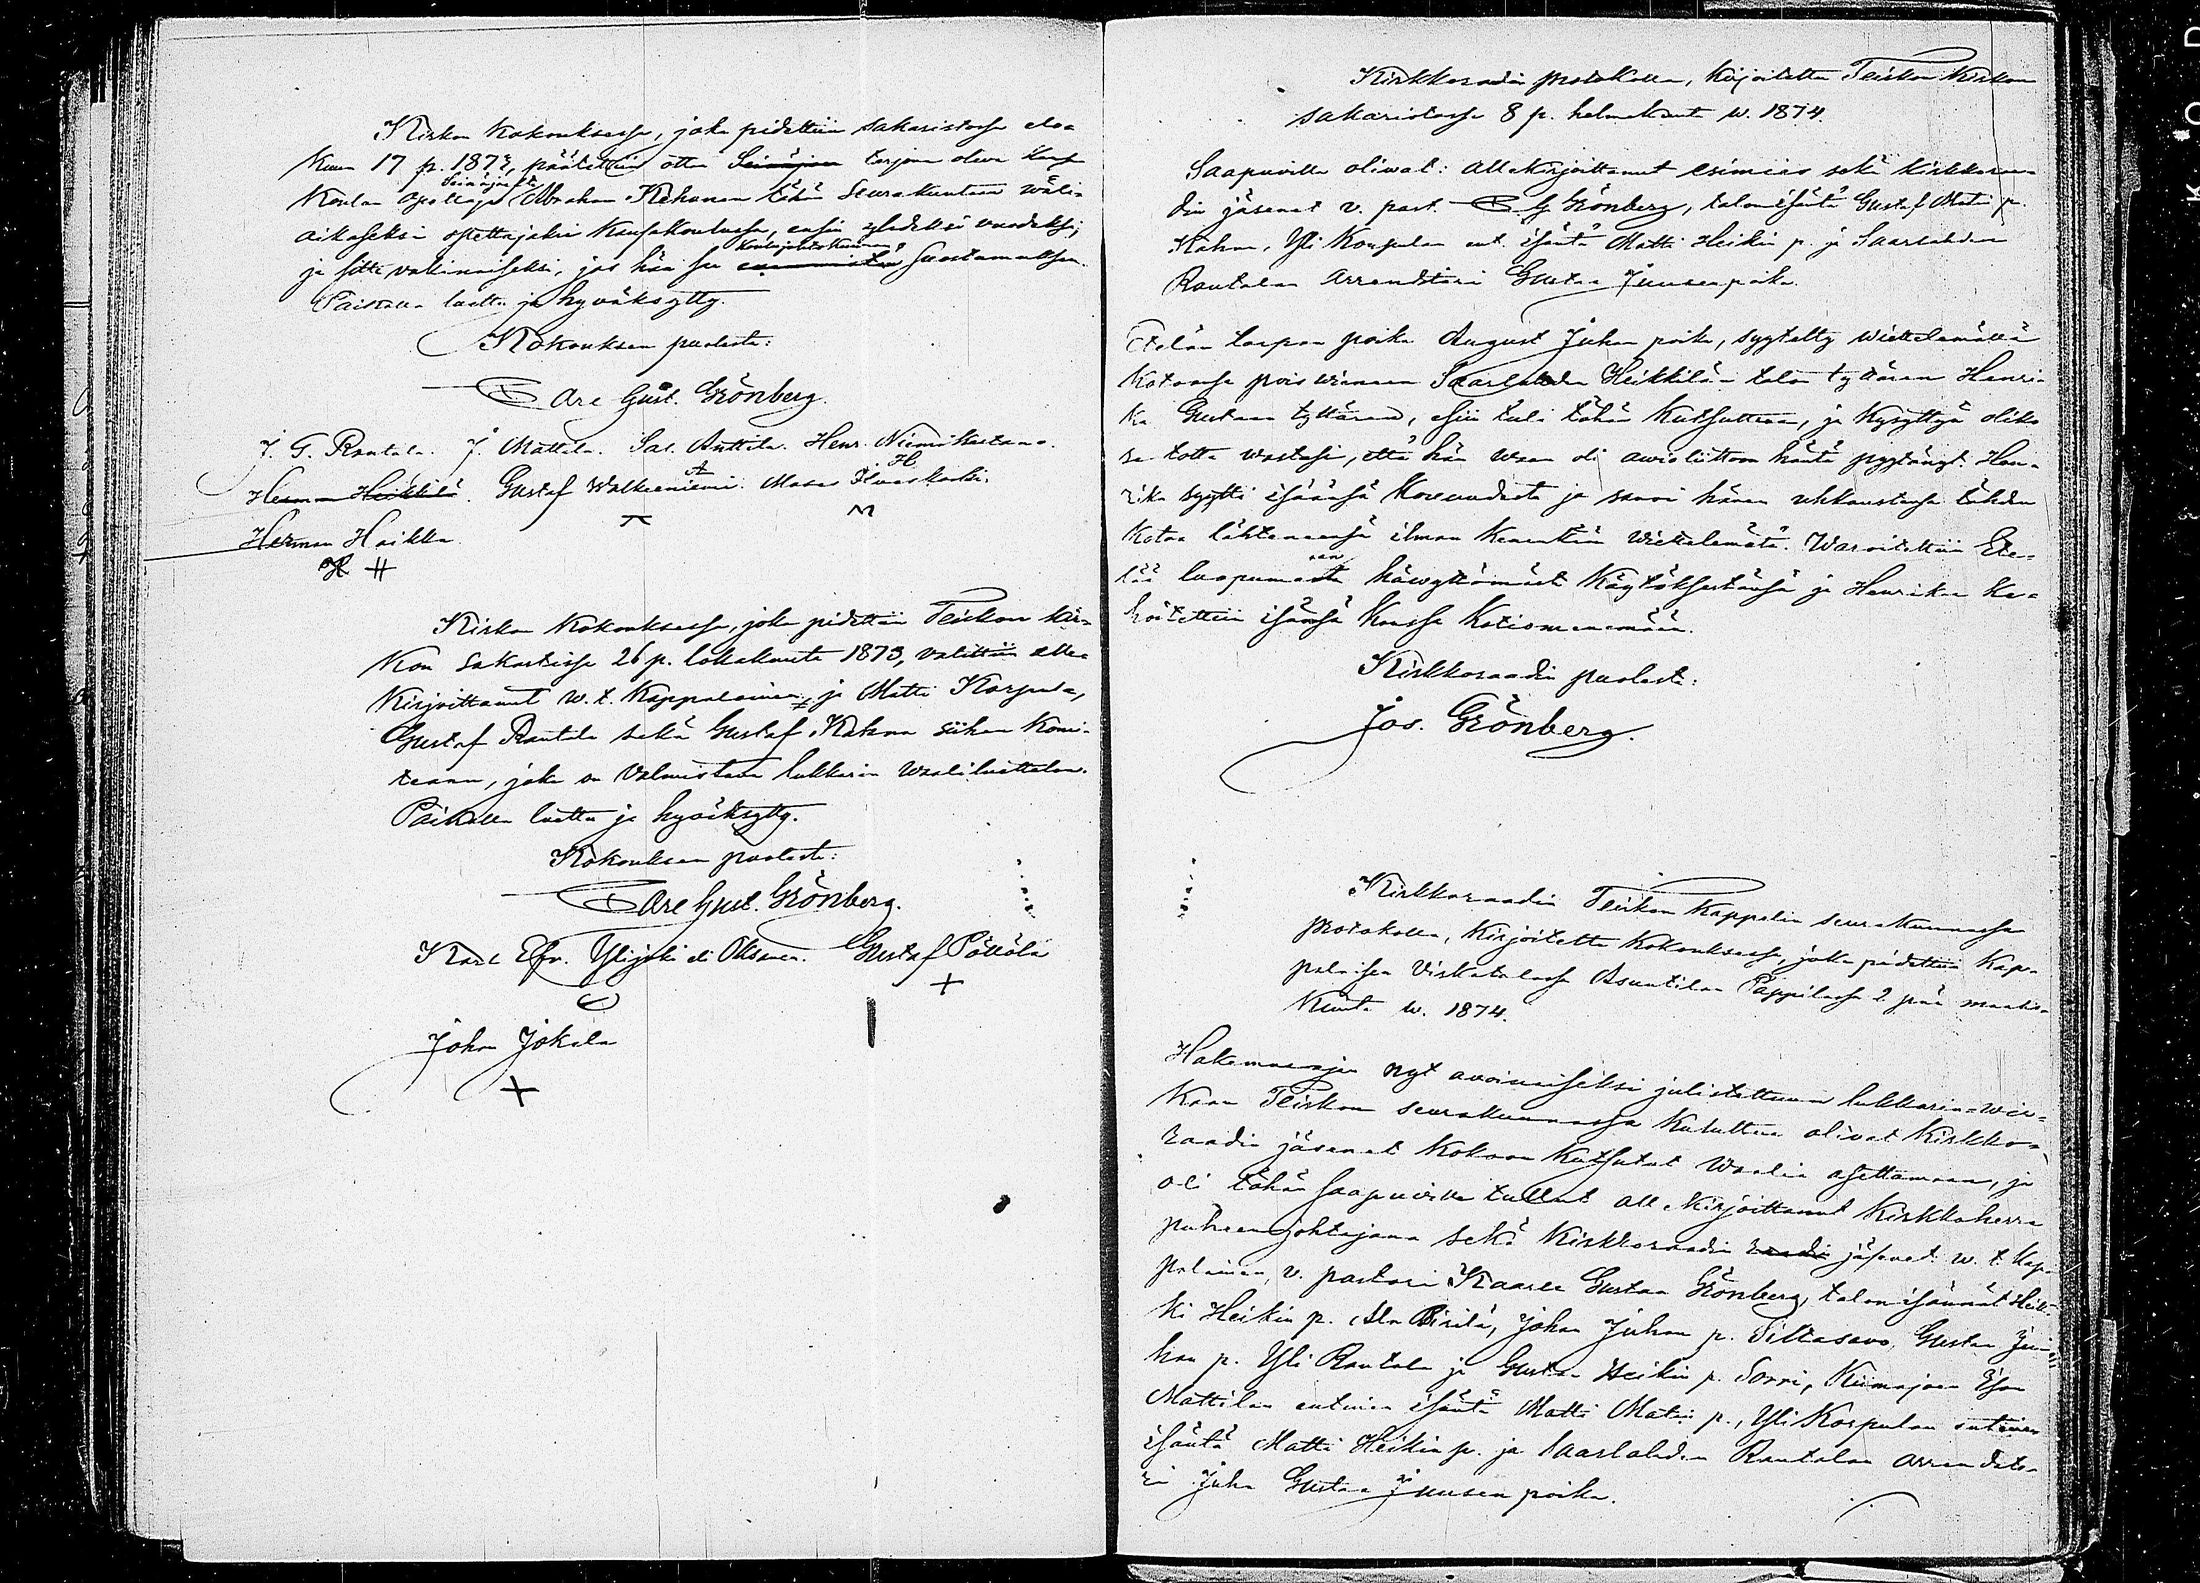 Kirkon Kokouksessa, joka pidettiin sakaristossa elo-
Kuun 17 p. 1873, päätettiin ottaa Seinäjoen tarjona oleva Kansa
Seinäjoelta
Koulun Opettaja Abraham Kekonen tähän Seurakuntaan väli-
aikaseksi opettajaksi Kansakouluun, ensin yhdeksi vuodeksi,
Koulujohtokunnan
ja sitte vakinaiseksi, jos hän saa suostumuksen.
Paikalla luettu ja hyväksytty.
Kokouksen puolesta:
Carl Gust. Grönberg.
J. G. Rantala. J. Mattila. Sal. Anttila. Henr. Niemikustaa.
Herman Heikkilä. Gustaf Walkeeniemi. Matts
Herman Haikka.
H
Kirkon Kokouksessa, joka pidettiin Teiskon kir-
Kon Sakastissa 26 p. lokakuuta 1873, valittiin alle-
Kirjoittanut w. t. Kappalainen, ja Matti Korpula,
Gustaf Rantala sekä Gustaf Kahna siihen Komi-
teaan, joka on Valmistava lukkarin Waaliluettelon.
Paikalla luettu ja hyväksytty.
Kokouksen puolesta:
Carl Gust. Grönberg.
Karl Efr. Ylijoki eli Oksanen. Gustaf Pöllölä
Johan Jokela
Kirkkoraadin protokolla, Kirjoitettu Teiskon Kirkon
sakaristossa 8 p. helmikuuta w. 1874.
Saapuvilla oliwat: allekirjoittanut esimies sekä kirkkoraa-
din jäsenet v. past. C G Grönberg, talon isäntä Gustaf Matin p.
Kahna, Yli Korpulan ent. isäntä Matti Heikin p. ja Saarlahden
Rantalan Arrendatori Gustaa Juusenpoika.
Etelän torpan poika August Juhan poika, syytetty wiettelemällä
Kotoansa pois wieneen Saarlahden Heikkilän talon tyttären Henri-
ka Gustaan tyttären, esiin tuli tähän Kutsuttuna, ja Kysyttyä oliko
se totta wastasi, että hän waan oli awioliittoon häntä pyytänyt. Hen-
rika syytti isäänsä Kowuudesta ja sanoi hänen uhkaustensa tähden
Kotoa lähteneensä ilman Kenenkään wiettelemätä. Waroitettiin Ete-
lää luopumaan häwyttömästä Käytöksestänsä ja Henrikaa Ke-
hoitettiin isänsä Kanssa Kotio menemään.
Kirkkoraadin puolesta:
Jos. Grönberg.
Kirkkoraadin Teiskon Kappelin seurakunnassa
protokolla, Kirjoitettu Kokouksessa, joka pidettiin Kap-
palaisen Virkatalossa Asuntilan Pappilassa 2 p:nä maalis-
Kuuta w. 1874.
Hakemusajan nyt avoinaiseksi julistettuun lukkarin-wir-
Kaan Teiskon seurakunnassa Kuluttua olivat Kirkko-
raadin jäsenet Kokoon Kutsutut Waalia asettamaan, ja
oli tähän saapuville tullut allekirjoittanut Kirkkoherra
puheenjohtajana sekä Kirkkoraadin raadin jäsenet: w. t. Kap-
palainen, v. pastori Kaarle Gustaa Grönberg, talon isännät Heik-
ki Heikin p. Ala Pirilä, Johan Juhan p. Siltasavo, Gustaa Ju-
han p. Yli Rantala ja Gustaa Heikin p. Sorri, Kiimajoen Esan
Mattilan entinen isäntä Matti Matin p., Yli Korpulan entinen
isäntä Matti Heikin p. ja Saarlahden Rantalan arrendato-
ri Juha Gustaa Juusen poika.